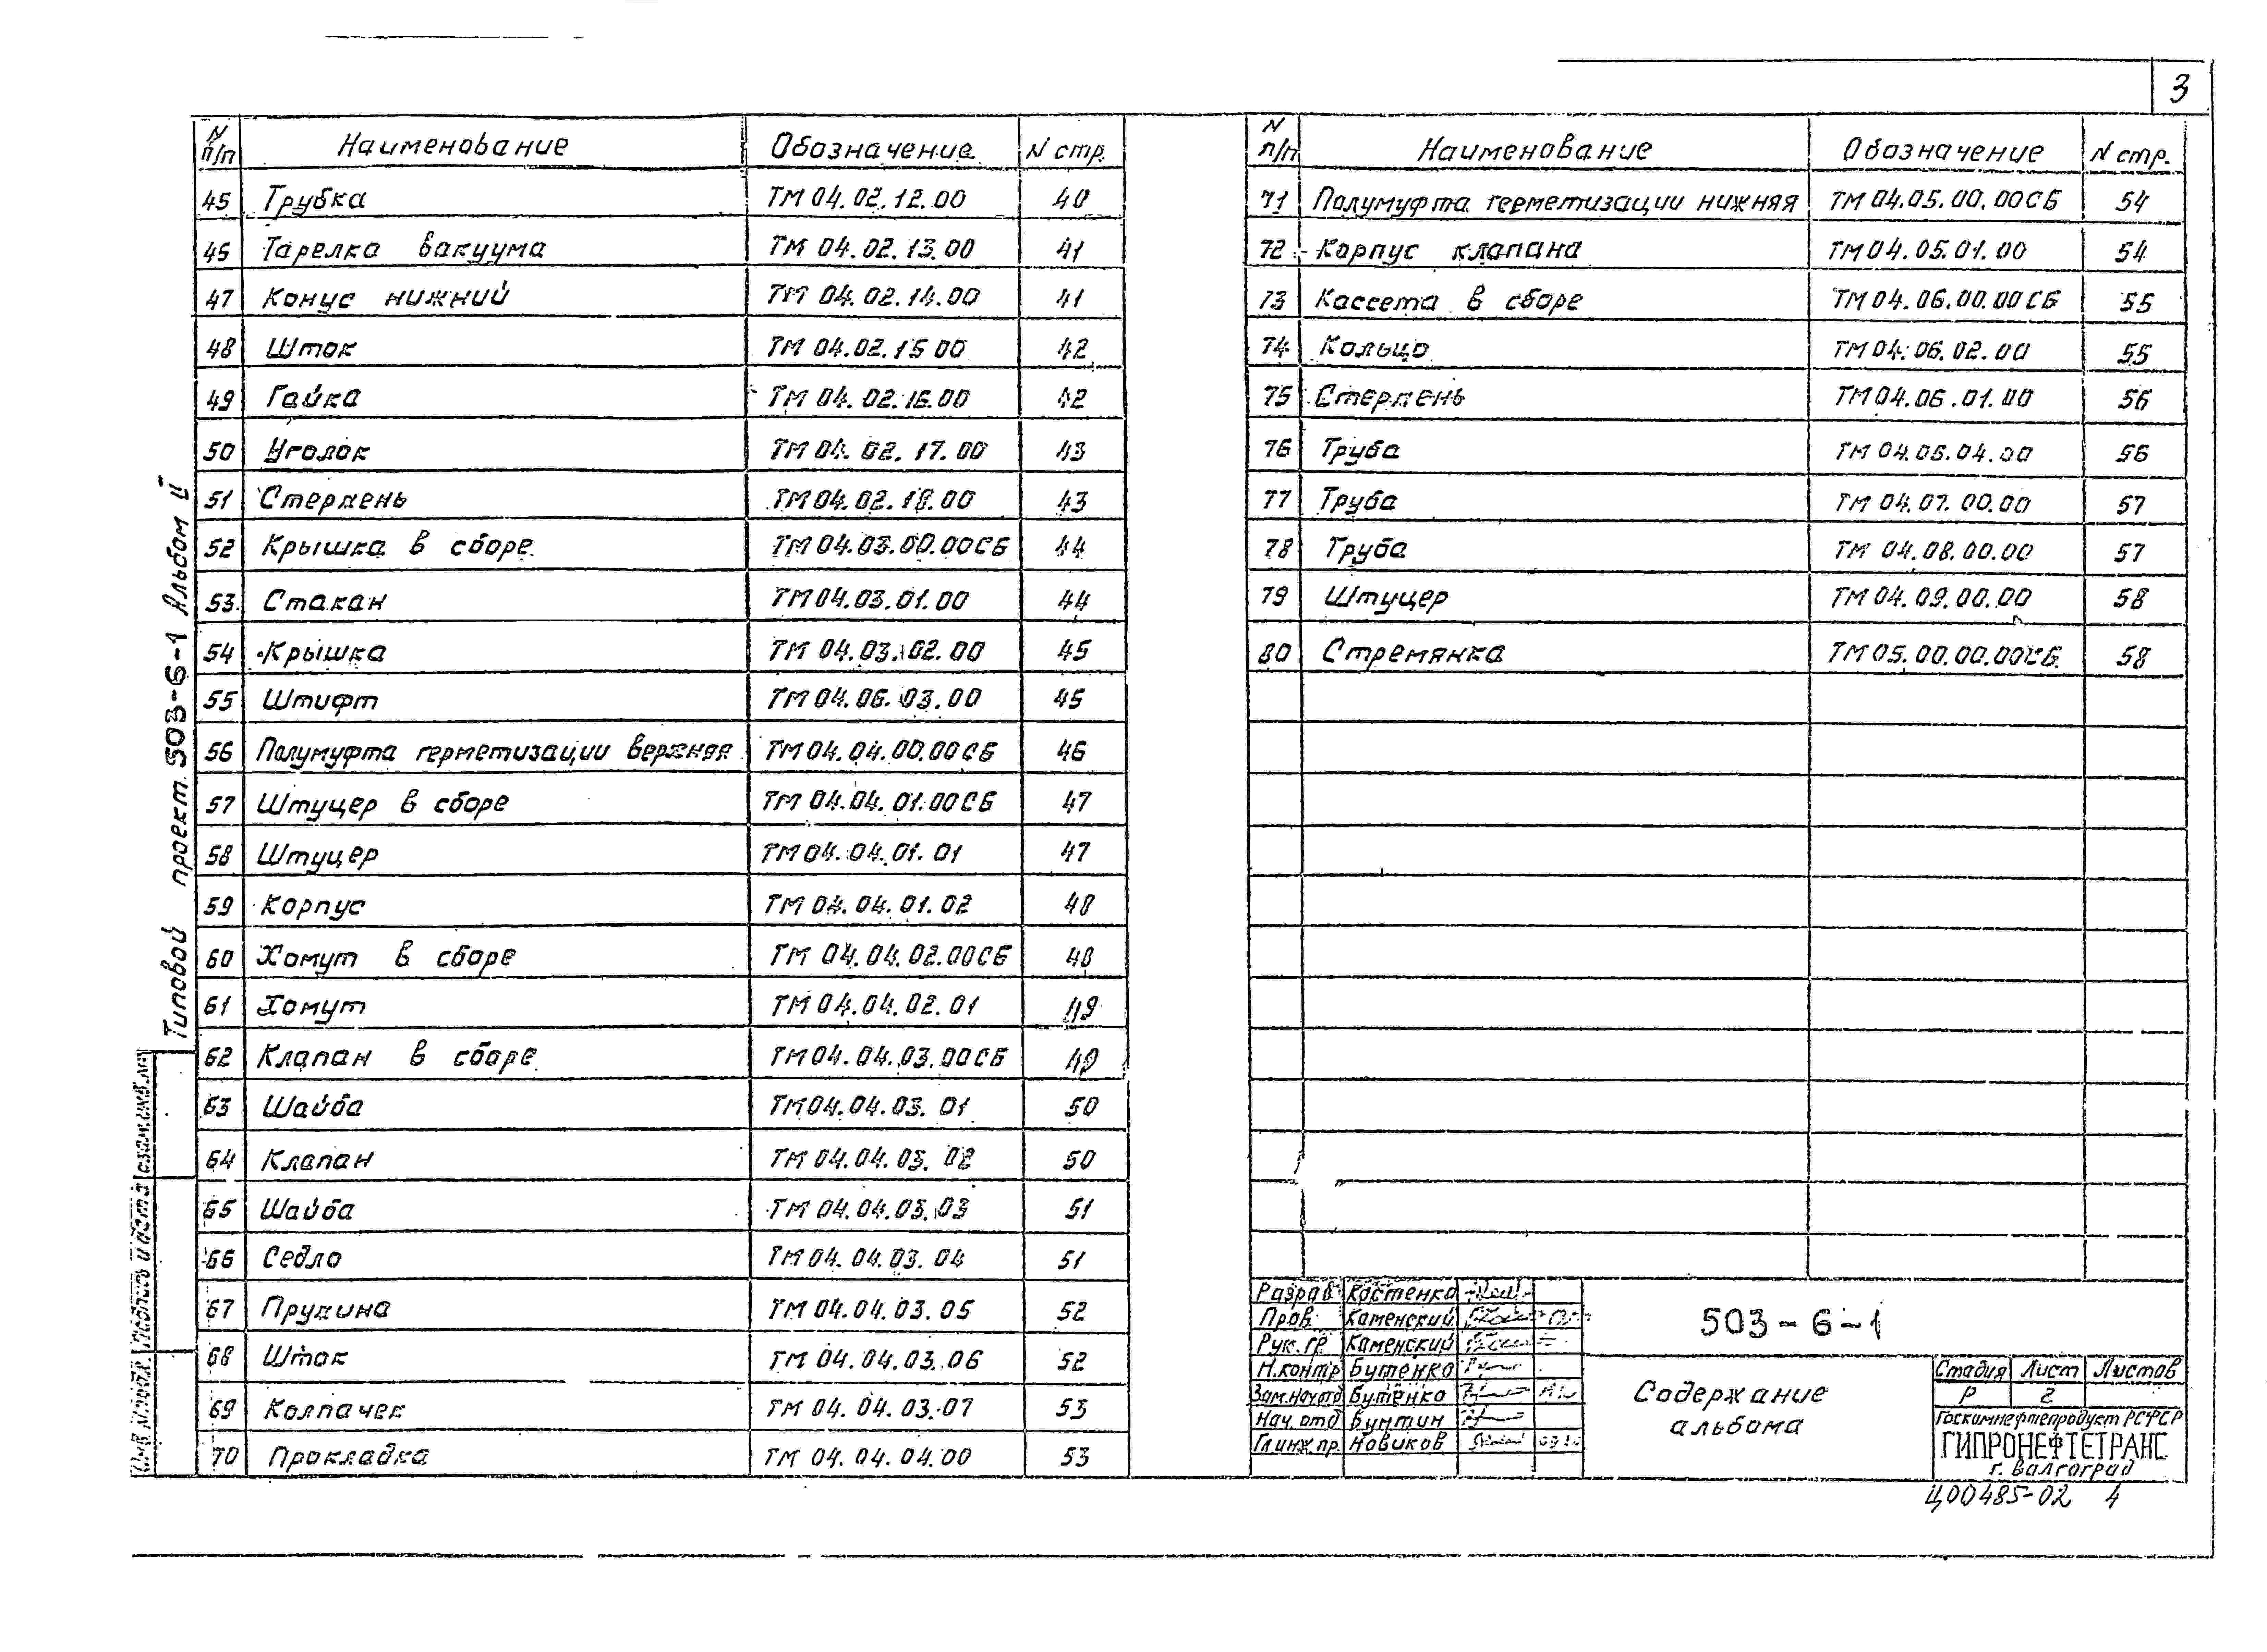 3
N п/п Наименование Обозначение N стр.
45 Трубка ТМ 04.02.12.00 40
46 Тарелка вакуума ТМ 04.02.13.00 41
47 Конус нижний ТМ 04.02.14.00 41
48 Шток ТМ 04.02.15 00 42
49 Гайка ТМ 04.02.16.00 42
50 Уголок ТМ 04.02.17.00 43
51 Стержень ТМ 04.02.18.00 43
52 Крышка в сборе ТМ 04.03.00.00СБ 44
53 Стакан ТМ 04.03.01.00 44
54 Крышка ТМ 04.03.02.00 45
55 Штифт ТМ 04.06.03.00 45
56 Полумуфта герметизации верхняя ТМ 04.04.00.00СБ 46
57 Штуцер в сборе ТМ 04.04.01.00СБ 47
58 Штуцер ТМ 04.04.01.01 47
59 Корпус ТМ 04.04.01.02 48
60 Хомут в сборе ТМ 04.04.02.00СБ 48
61 Хомут ТМ 04.04.02.01 49
62 Клапан в сборе ТМ 04.04.03.00СБ 49
63 Шайба ТМ 04.04.03.01 50
64 Клапан ТМ 04.04.03.02 50
65 Шайба ТМ 04.04.03.03 51
66 Седло ТМ 04.04.03.04 51
67 Пружина ТМ 04.04.03.05 52
68 Шток ТМ 04.04.03.06 52
69 Колпачек ТМ 04.04.03.07 53
70 Прокладка ТМ 04.04.04.00 53
N п/п Наименование Обозначение N стр.
71 Полумуфта герметизации нижняя ТМ 04.05.00.00СБ 54
72 Корпус клапана ТМ 04.05.01.00 54
73 Кассета в сборе ТМ 04.06.00.00СБ 55
74 Кольцо ТМ 04.06.02.00 55
75 Стержень ТМ 04.06.01.00 56
76 Труба ТМ 04.06.04.00 56
77 Труба ТМ 04.07.00.00 57
78 Труба ТМ 04.08.00.00 57
79 Штуцер ТМ 04.09.00.00 58
80 Стремянка ТМ 05.00.00.00СБ 58
Типовой проект 503-6-1 Альбом II
Инв. N подл. Подпись и дата Взам. инв. N
Разраб Костенко
Пров. Каменский
Рук. гр. Каменский
Н.контр Бутенко
Зам.нач.отд Бутенко
Нач. отд Бунтин
Гл.инж.пр. Новиков
503-6-1
Содержание
альбома
Стадия Лист Листов
Р 2
Госкомнефтепродукт РСФСР
ГИПРОНЕФТЕТРАНС
г. Волгоград
Ц00485-02 4